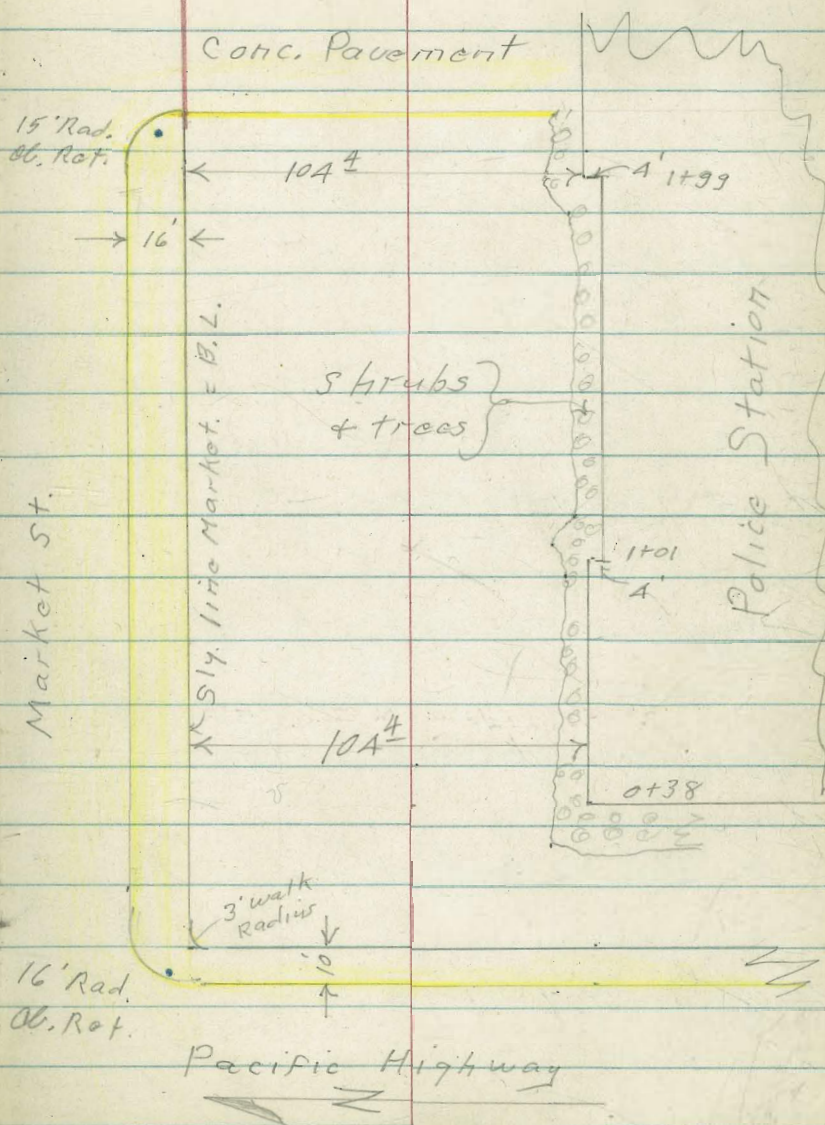 Conc. Pavement
15' Rad.
Cb. Ret.
104 4
4' 1+99
16'
Sly. line Market. = B.L.
Shrubs
& trees
Police Station
Market St.
1+01
4'
104 4
0+38
3' walk
Radius
10'
16' Rad.
Cb. Ret.
Pacific Highway